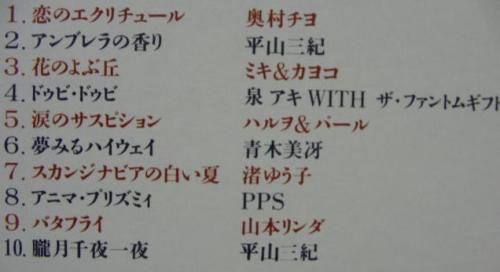 1. 恋のエクリチュール 奥村チヨ
2. アンブレラの香り 平山三紀
3. 花のよぶ丘 ミキ&カヨコ
4. ドゥビ・ドゥビ 泉 アキ WITH ザ・ファントムギフト
5. 涙のサスピション ハルヲ&パール
6. 夢みるハイウェイ 青木美冴
7. スカンジナビアの白い夏 渚ゆう子
8. アニマ・プリズミィ PPS
9. バタフライ 山本リンダ
10. 朧月千夜一夜 平山三紀